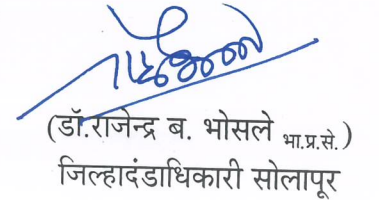 (डॉ.राजेन्द्र ब. भोसले भा.प्र.से.)
जिल्हादंडाधिकारी सोलापूर